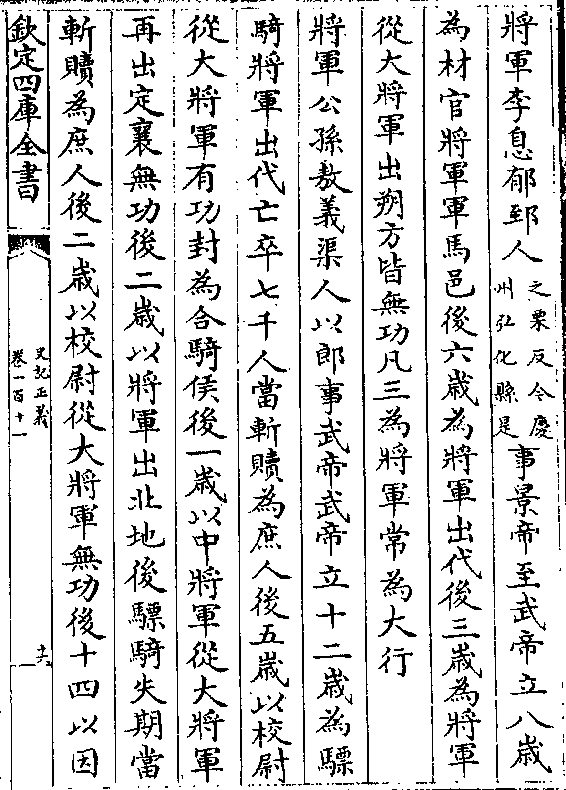 將軍李息郁郅人之栗反今慶州弘化縣是事景帝至武帝立八歲
為材官將軍軍馬邑後六歲為將軍出代後三歲為將軍
從大將軍出朔方皆無功凡三為將軍常為大行
將軍公孫敖義渠人以郎事武帝武帝立十二歲為驃
騎將軍出代亡卒七千人當斬贖為庶人後五歲以校尉
從大將軍有功封為合騎侯後一歲以中將軍從大將軍
再出定襄無功後二歲以將軍出北地後驃騎失期當
斬贖為庶人後二歲以校尉從大將軍無功後十四以因
欽定四庫全書
史記正義
卷一百十一
十六